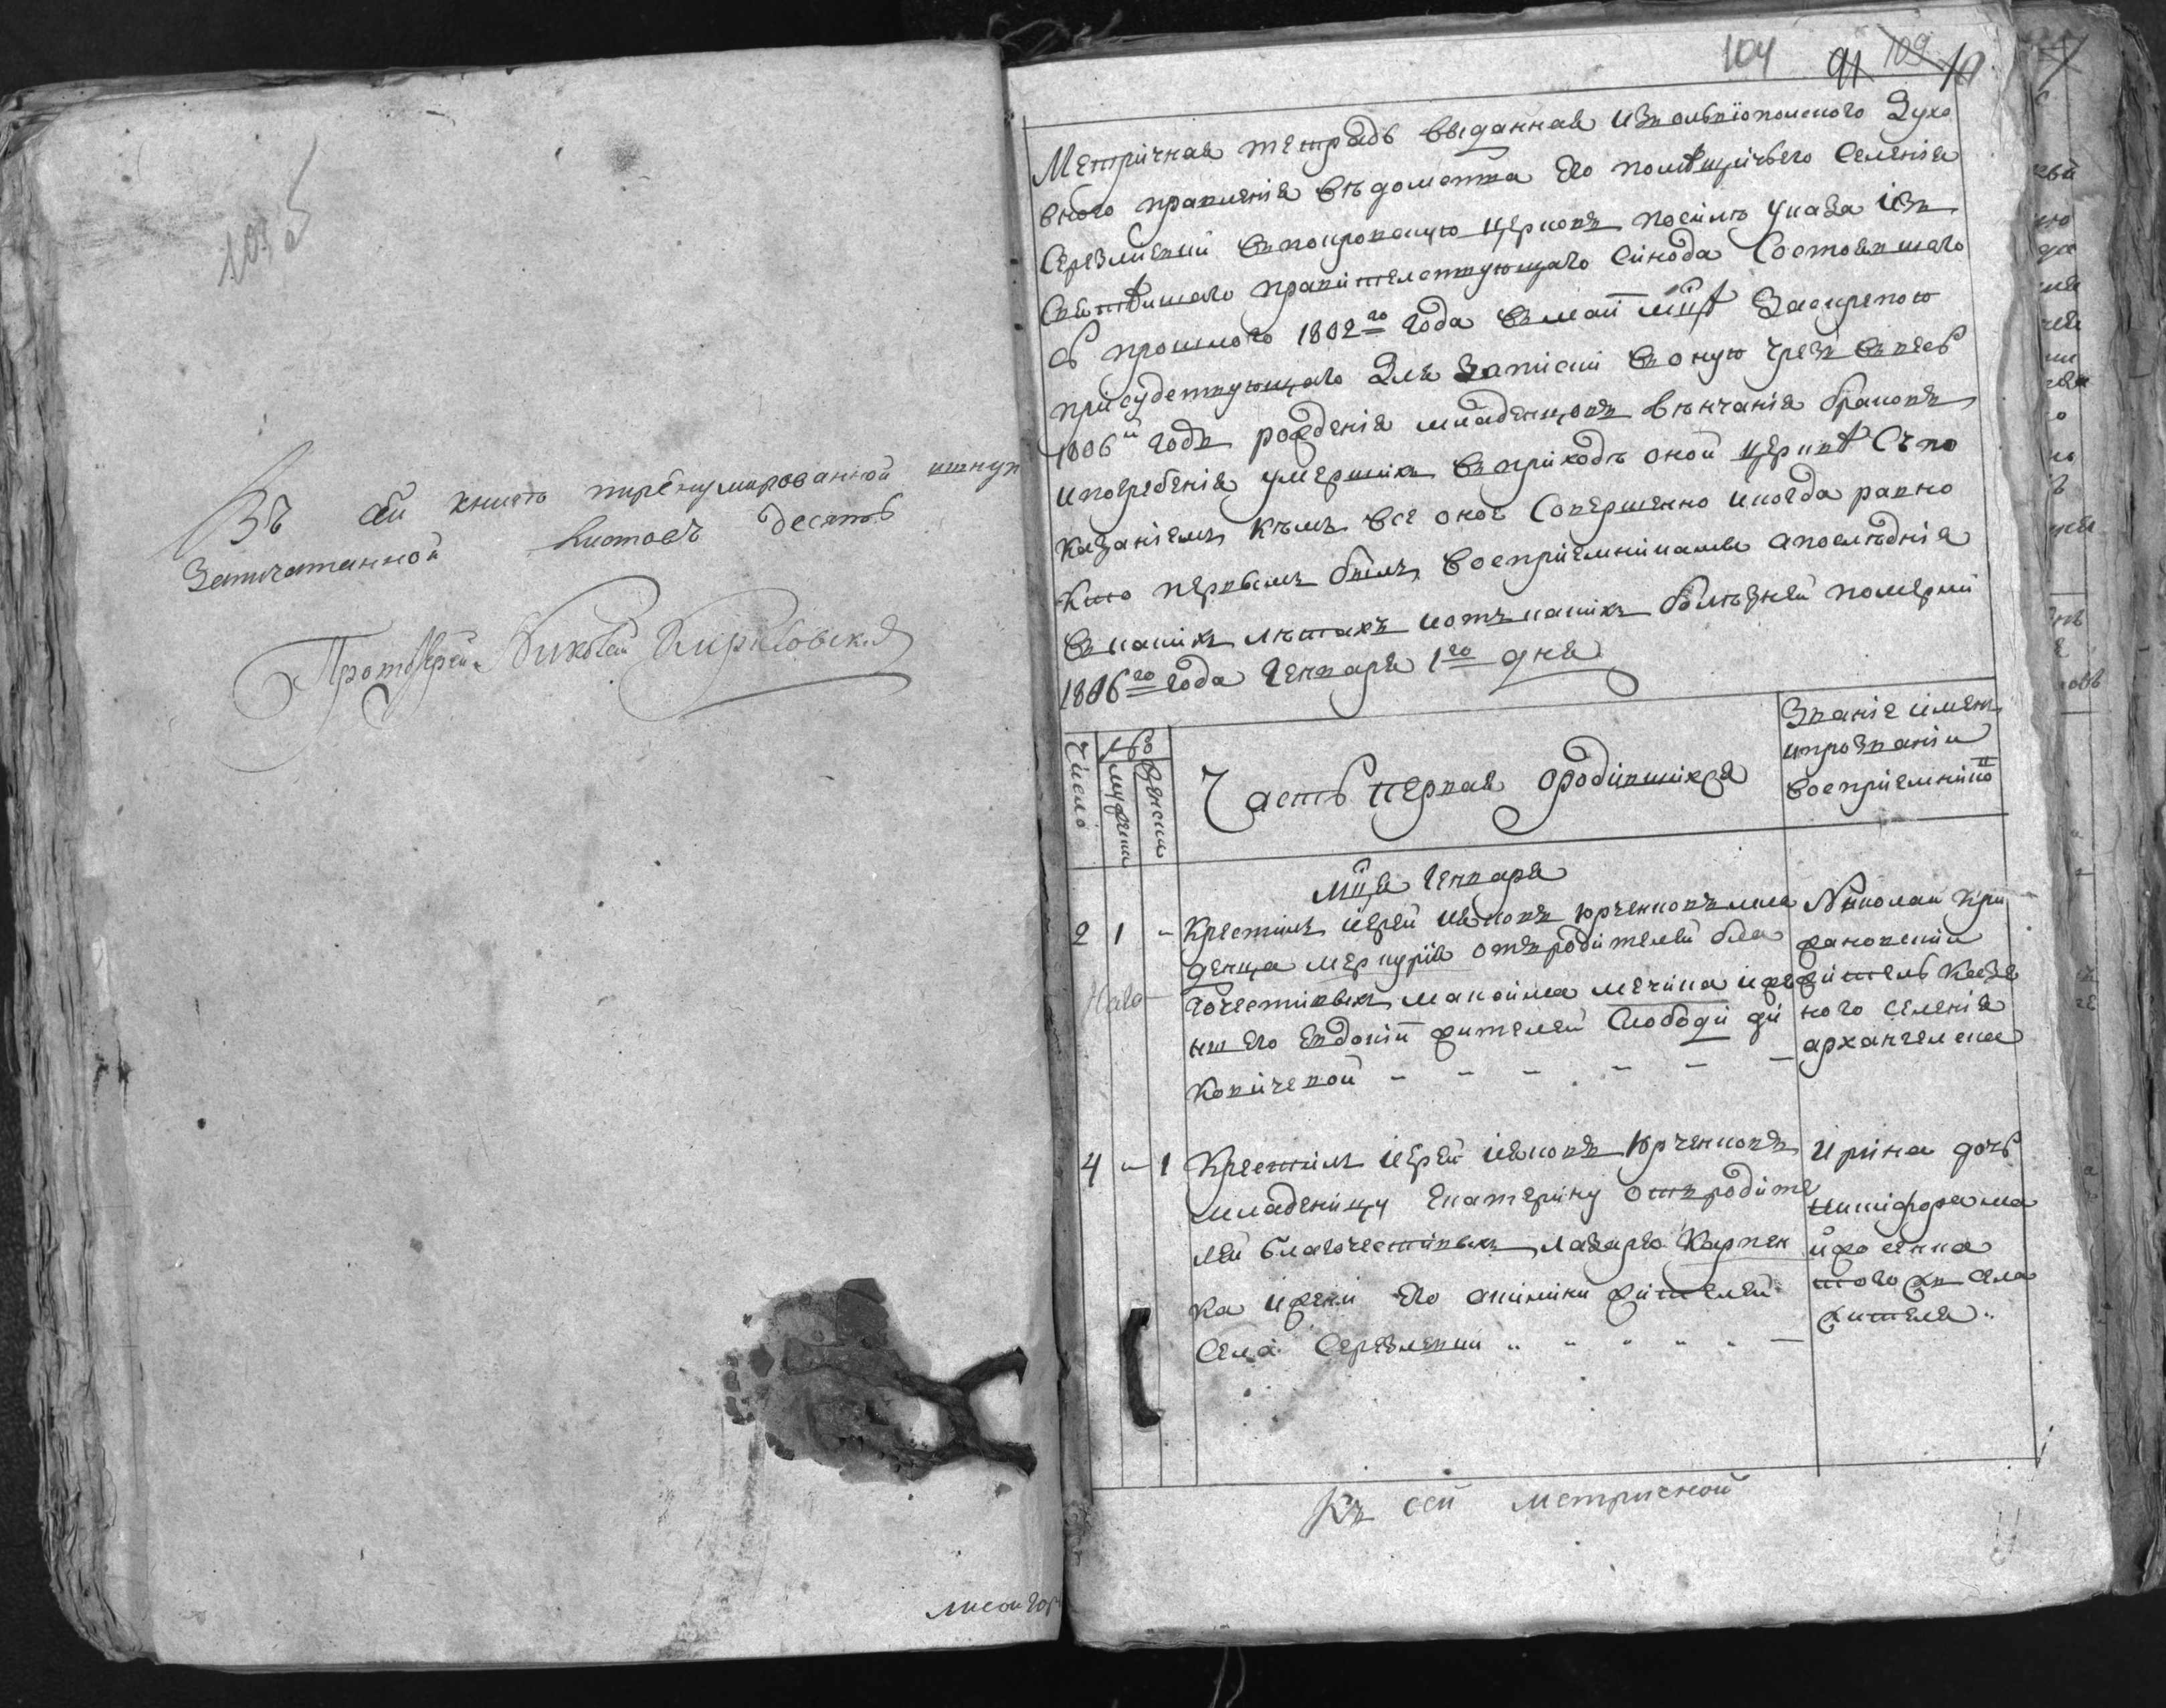 103 б
Въ сей книгѣ пренумерованной ишнур
Запечатанной листовъ десять
Протоіерей Николай Кириловскій
104 91 109 10
Метричная тетрадь выданная изъ ольвіопольского Духо
вного правленія вѣдомства его помѣщичьего Селенія
Серезлиевки въ покровскую церковь посилѣ указа изъ
Святѣйшаго правительствующаго Синода Состоявшаго
прошлого 1802го года въ маіи мцѣ Заскрепою
присудствующаго Для Записки въ оную чрезъ весь
1806й годъ рожденія младенцовъ вѣнчанія браковъ
и погребенія умершихъ въ приходѣ оной церквѣ Съ по
казаніемъ кѣмъ все оное Совершенно и когда равно
Кто первымъ былъ воспріемникамъ а послѣдніе
въ какихъ лѣтахъ и отъ какихъ болѣзней померли
1806го года Генваря 1го дня
Число
мужеска
женска
Часть первая ородившихся
Званіе имена
ипрозваніи
воспріемнико
Мца Генваря
2 1 - Крестилъ іерей Іаковъ Юрченковъ мла
денца меркурія отъ родителей бла
гочестивыхъ максима мечика ижо
ны его Евдокіи жителей Слободи ди
ковичевой - - - - -
Николай
жановскій
житель Казе
ного селенія
архангелска
4 - 1 Крестилъ іерей Іаковъ Юрченковъ
младеницу Екатерину отъ родите
лей благочестивыхъ лазаря Карпен
ка ижени его жителей
Села Серезлевки
Ирина дочь
никифора ма
того жъ села
жителя
Къ сей метрической